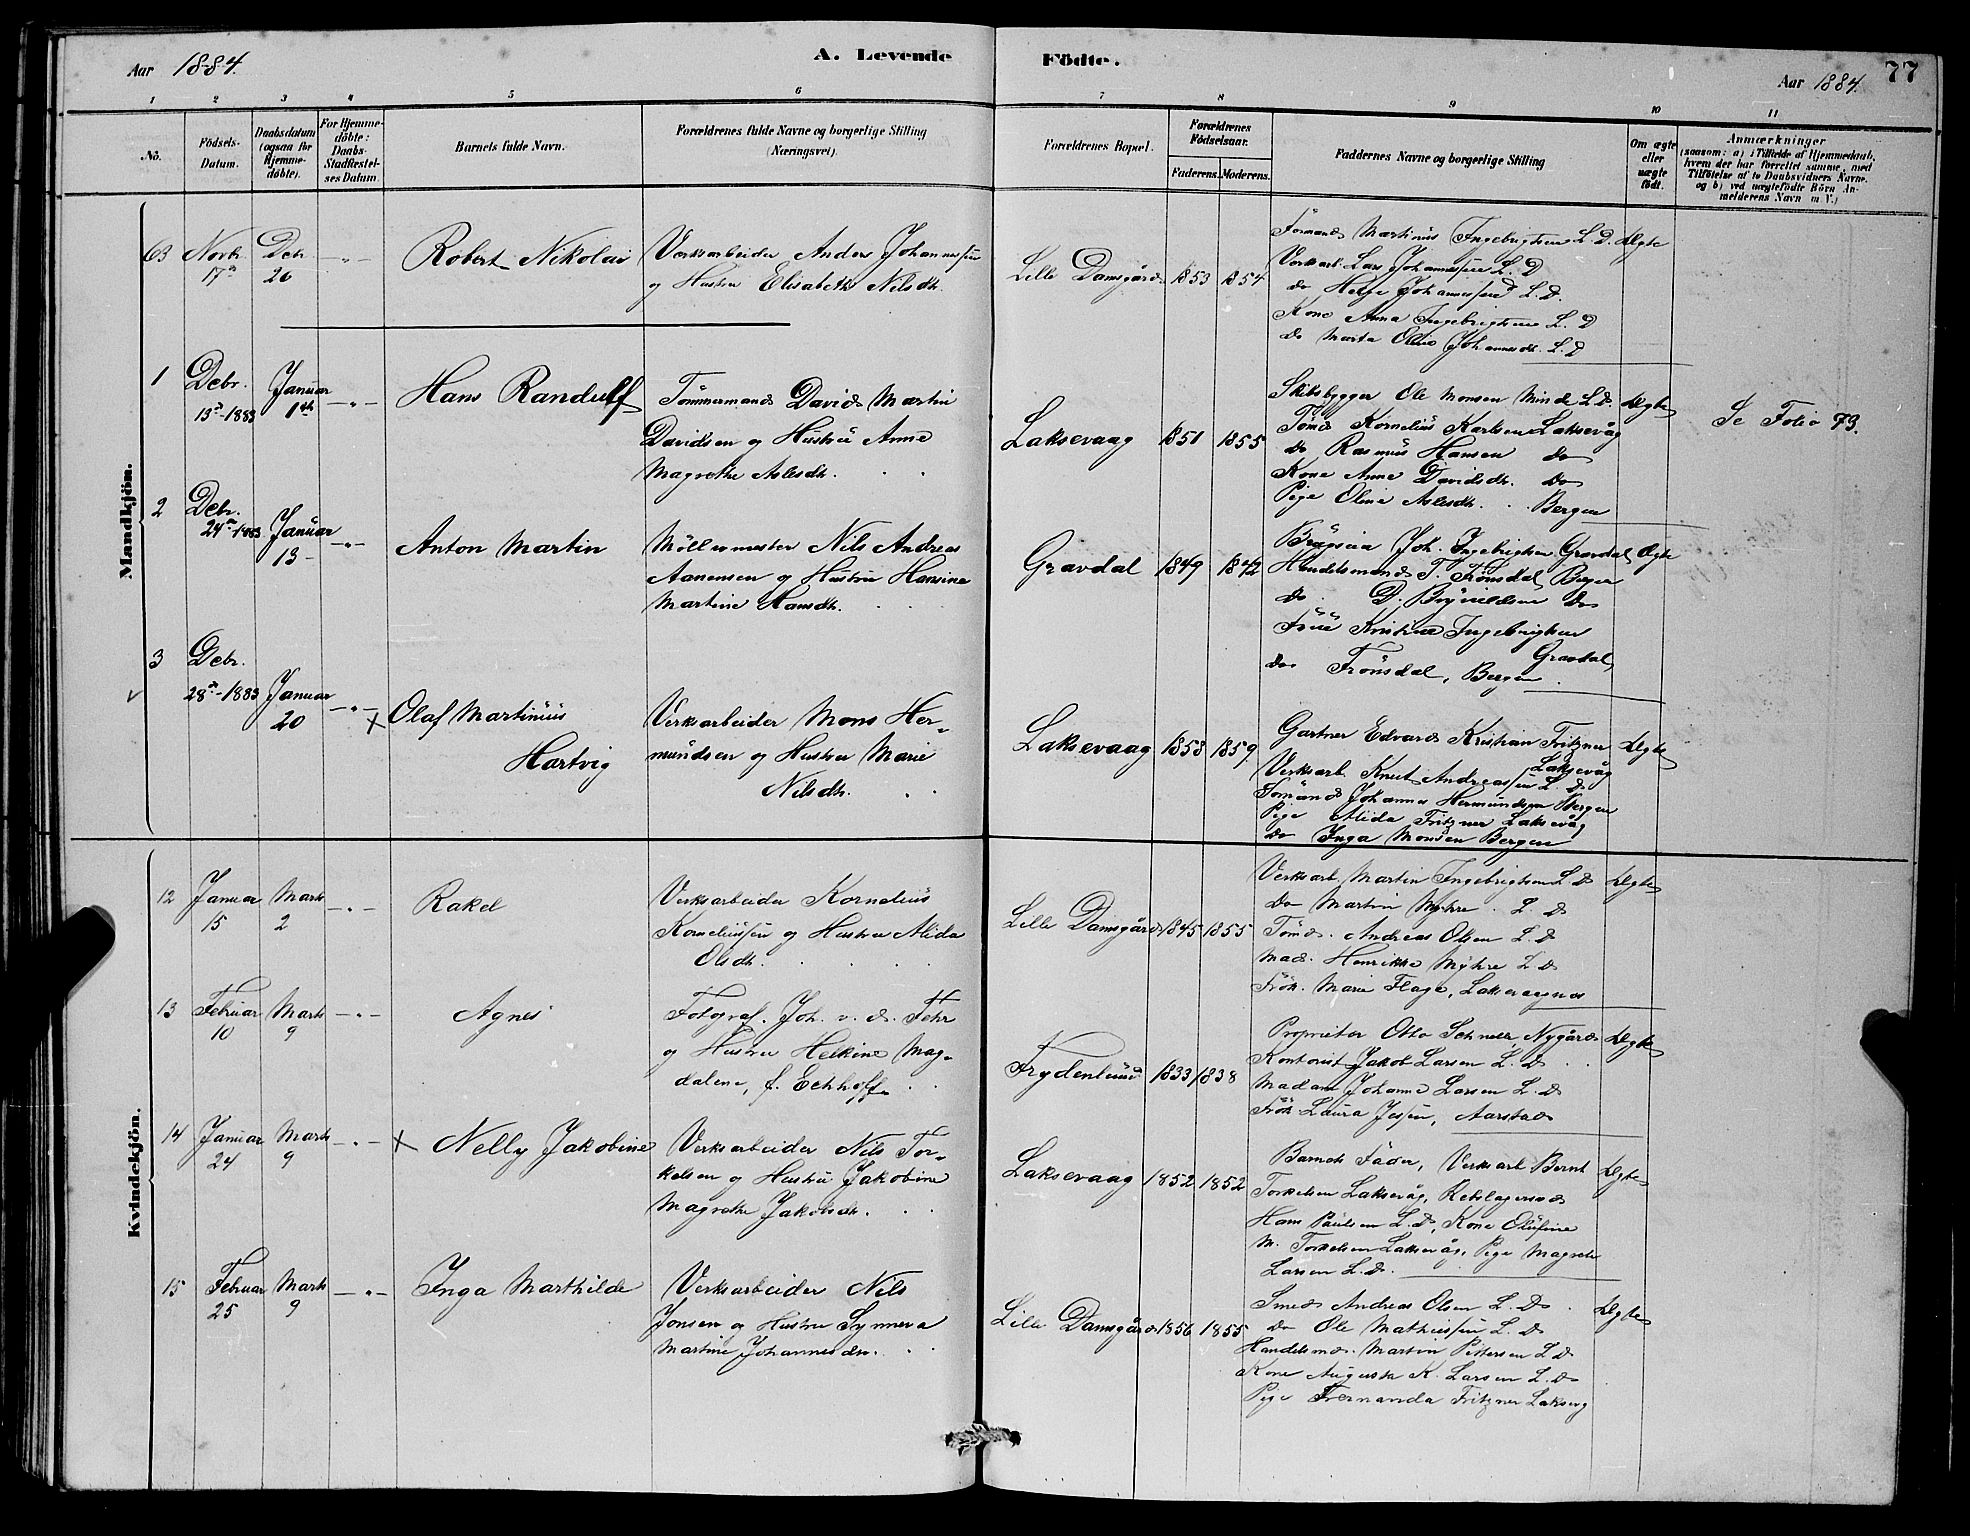 Aar 1884.
A. Levende Födte.
Aar 1884.
77
1 2 3 4 5 6 7 8 9 10 11
No.
Födsels-Datum.
Daabsdatum (ogsaa for Hjemme-döbte).
For Hjemme-döbte: Daabs-Stadfæstel-ses Datum
Barnets fulde Navn.
Forældrenes fulde Navne og borgerlige Stilling (Næringsvei).
Forældrenes Bopæl.
Forældrenes Födselsaar.
Faderens. Moderens.
Faddernes Navne og borgerlige Stilling
Om ægte eller uægte födt.
Anmærkninger
(saasom: a) i Tilfælde af Hjemmedaab,
hvem der har forrettet samme, med
Tilföielse af to Daabsvidners Navne.
og b) ved uægtefödte Börn An-
melderens Navn m. V.)
Mandkjön.
63 Novbr. 17de Debr. 26 — " —
Robert Nikolai
Verksarbeider Anders Johannessen
og Hustru Elisabeth Nilsdtr.
Lille Damsgård 1853 1854
Formand Martinus Ingebrigtsen L. D.
Verksarb. Lars Johannessen L. D
do Helge Johannessen L. D.
Kone Anna Ingebrigtsen L. D
do Marta Oline Johannesdtr. L. D
Ægte
1 Debr. 13de-1883 Januar 1ste — " —
Hans Randulf
Tömmermand David Martin
Davidsen og Hustru Anne
Magrethe Aslesdtr.
Laksevaag 1851 1855
Skibsbygger Ole Monsen Minde L. D.
Tömd Kornelius Karlsen Laksevåg
do Rasmus Hansen do
Kone Anne Davidsdtr. do
Pige Oline Aslesdtr. Bergen
Ægte
Se Folio 73.
2 Debr. 24de-1883 Januar 13 — " —
Anton Martin
Möllermester Nils Andreas
Aanensen og Hustru Hansine
Martine Hansdtr.
Gravdal 1849 1842
Joh. Ingebrigtsen Gravdal
Handelsmand T. Frönsdal Bergen
do D. do
Frue Kristine Ingebrigtsen
Gravdal,
do Frönsdal, Bergen.
Ægte
3 Debr. 28de-1883 Januar 20 — " —
Olaf Martinius
Hartvig
Verksarbeider Mons Her-
mundsen og Hustru Marie
Nilsdtr.
Laksevaag 1858 1859
Gartner Edvard Kristian Fritzner
Laksevåg
Verksarb Knut Andreassen L. D
Tömand Johannes Hermundsen Bergen
Pige Alida Fritzner Laksevåg
do Inga Monsen Bergen
Ægte
Kvindekjön.
12 Januar 15 Marts 2 — " —
Rakel
Verksarbeider Kornelius
Korneliussen og Hustru Alida
Olsdtr.
Lille Damsgård 1845 1855
Verksarb. Martin Ingebrigtsen L. D
do Martin Myhre L. D
Tömd. Andreas Olsen L. D
Mad. Henrikke Myhre L. D
Frök. Marie Flage, Laksevaagnes
Ægte
13 Februar 10 Marts 9 — " —
Agnes
Fotograf. Joh. v. d. Fehr
og Hustru Helkine Mag-
dalene, f. Eckhoff
Frydenlund 1833 1838
Proprietær Otto Nygård
Kontorist Jakob Larsen L. D.
Madam Johanne Larsen L. D
Frök Laura Jessen, Aarstad
Ægte
14 Januar 24 Marts 9 — " —
Nelly Jakobine
Verksarbeider Nils Tor-
kelsen og Hustru Jakobine
Magrethe Jakobsdtr.
Laksevaag 1852 1852
Barnets Fader, Verksarb Bernt
Torkelsen Laksevåg, Rebslagersvd
Hans Paulsen L. D, Kone Olufine
M. Torkelsen Laksevåg, Pige Magrete
Larsen L. D.
Ægte
15 Februar 25 Marts 9 — " —
Inga Marthilde
Verksarbeider Nils
Jonsen og Hustru Synneva
Martine Johannesdtr.
Lille Damsgård 1856 1855
Smed Andreas Olsen L. D
do Ole Mathiessen L. D
Handelsmd. Martin Pettersen L. D
Kone Augusta K. Larsen L. D
Pige Fernanda Fritzner Laksevg
Ægte